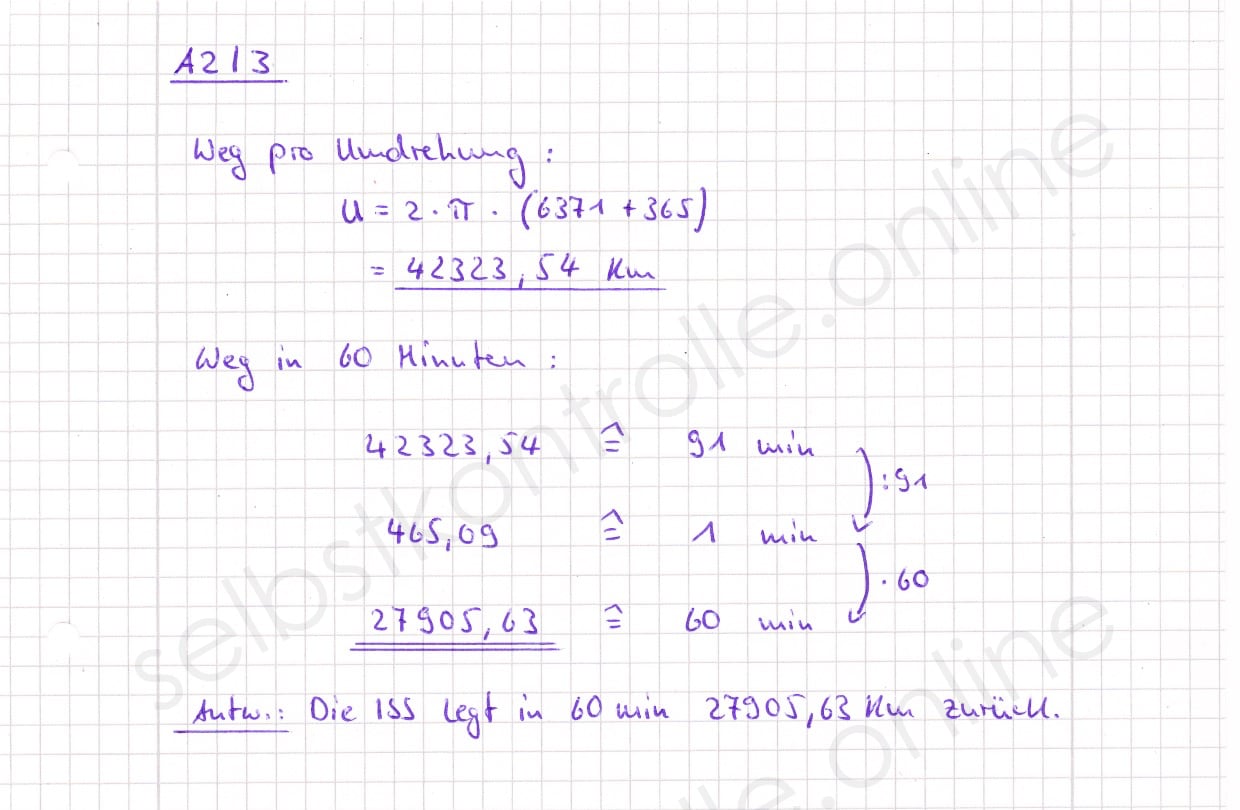 A2/3
Weg pro Umdrehung:
U = 2 · π · (6371 + 365)
= 42323,54 Km
Weg in 60 Minuten:
42323,54 ≙ 91 min
:91
465,09 ≙ 1 min
· 60
27905,63 ≙ 60 min
Antw.: Die ISS legt in 60 min 27905,63 Km zurück.
selbstkontrolle.online
online